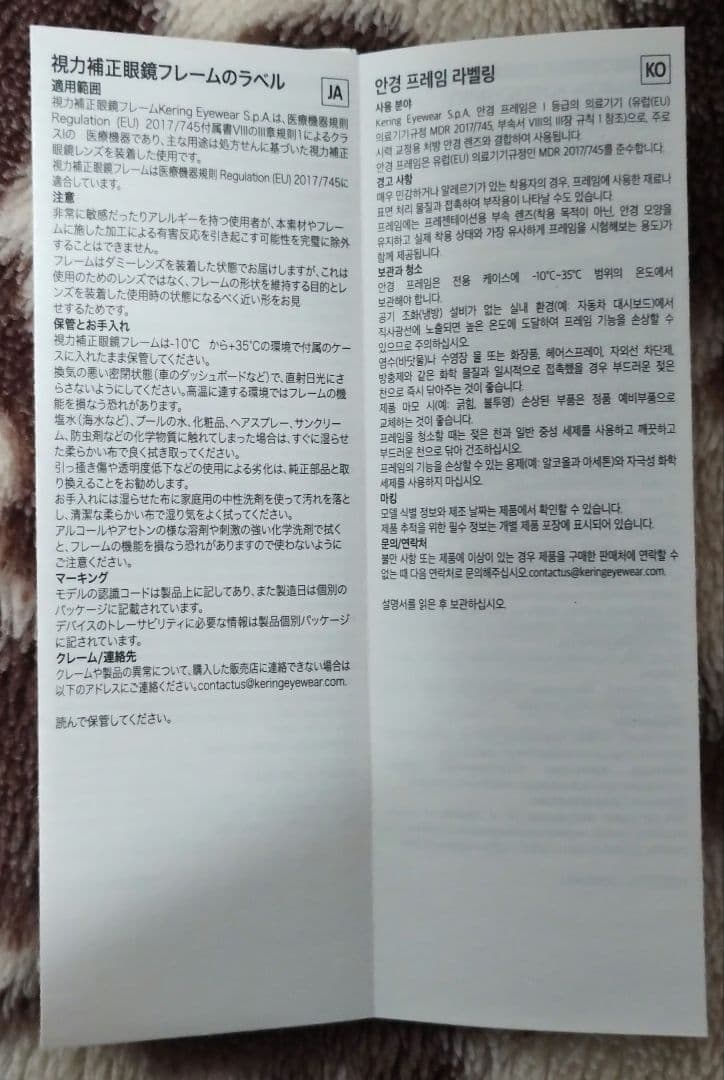 視力補正眼鏡フレームのラベル
JA
適用範囲
視力補正眼鏡フレームKering Eyewear S.p.A.は、医療機器規則
Regulation (EU) 2017/745付属書VIIIのIII章規則1によるクラ
スIの 医療機器であり、主な用途は処方せんに基づいた視力補正
眼鏡レンズを装着した使用です。
視力補正眼鏡フレームは医療機器規則 Regulation (EU) 2017/745に
適合しています。
注意
非常に敏感だったりアレルギーを持つ使用者が、本素材やフレー
ムに施した加工による有害反応を引き起こす可能性を完璧に除外
することはできません。
フレームはダミーレンズを装着した状態でお届けしますが、これは
使用のためのレンズではなく、フレームの形状を維持する目的とレ
ンズを装着した使用時の状態になるべく近い形をお見
せするためです。
保管とお手入れ
視力補正眼鏡フレームは-10°C から+35°Cの環境で付属のケー
スに入れたまま保管してください。
換気の悪い密閉状態（車のダッシュボードなど）で、直射日光にさ
らさないようにしてください。高温に達する環境ではフレームの機
能を損なう恐れがあります。
塩水（海水など）、プールの水、化粧品、ヘアスプレー、サンクリー
ム、防虫剤などの化学物質に触れてしまった場合は、すぐに湿らせ
た柔らかい布で良く拭き取ってください。
引っ掻き傷や透明度低下などの使用による劣化は、純正部品と取
り換えることをお勧めします。
お手入れには湿らせた布に家庭用の中性洗剤を使って汚れを落と
し、清潔な柔らかい布で湿り気をよく拭ってください。
アルコールやアセトンの様な溶剤や刺激の強い化学洗剤で拭く
と、フレームの機能を損なう恐れがありますので使わないように
ご注意ください。
マーキング
モデルの認識コードは製品上に記してあり、また製造日は個別の
パッケージに記載されています。
デバイスのトレーサビリティに必要な情報は製品個別パッケージ
に記されています。
クレーム/連絡先
クレームや製品の異常について、購入した販売店に連絡できない場合は
以下のアドレスにご連絡ください。contactus@keringeyewear.com.
読んで保管してください。
안경 프레임 라벨링
KO
사용 분야
Kering Eyewear S.p.A. 안경 프레임은 I 등급의 의료기기 (유럽(EU)
의료기기규정 MDR 2017/745, 부속서 VIII의 III장 규칙 1 참조)으로, 주로
시력 교정용 처방 안경 렌즈와 결합하여 사용됩니다.
안경 프레임은 유럽(EU) 의료기기규정인 MDR 2017/745를 준수합니다.
경고 사항
매우 민감하거나 알레르기가 있는 착용자의 경우, 프레임에 사용한 재료나
표면 처리 물질과 접촉하여 부작용이 나타날 수도 있습니다.
프레임에는 프레젠테이션용 부속 렌즈(착용 목적이 아닌, 안경 모양을
유지하고 실제 착용 상태와 가장 유사하게 프레임을 시험해보는 용도)가
함께 제공됩니다.
보관과 청소
안경 프레임은 전용 케이스에 -10°C~35°C 범위의 온도에서
보관해야 합니다.
공기 조화(냉방) 설비가 없는 실내 환경(예: 자동차 대시보드)에서
직사광선에 노출되면 높은 온도에 도달하여 프레임 기능을 손상할 수
있으므로 주의하십시오.
염수(바닷물)나 수영장 물 또는 화장품, 헤어스프레이, 자외선 차단제,
방충제와 같은 화학 물질과 일시적으로 접촉했을 경우 부드러운 젖은
천으로 즉시 닦아주는 것이 좋습니다.
제품 마모 시(예: 긁힘, 불투명) 손상된 부품은 정품 예비부품으로
교체하는 것이 좋습니다.
프레임을 청소할 때는 젖은 천과 일반 중성 세제를 사용하고 깨끗하고
부드러운 천으로 닦아 건조하십시오.
프레임의 기능을 손상할 수 있는 용제(예: 알코올과 아세톤)와 자극성 화학
세제를 사용하지 마십시오.
마킹
모델 식별 정보와 제조 날짜는 제품에서 확인할 수 있습니다.
제품 추적을 위한 필수 정보는 개별 제품 포장에 표시되어 있습니다.
문의/연락처
불만 사항 또는 제품에 이상이 있는 경우 제품을 구매한 판매처에 연락할 수
없는 때 다음 연락처로 문의해주십시오.contactus@keringeyewear.com.
설명서를 읽은 후 보관하십시오.